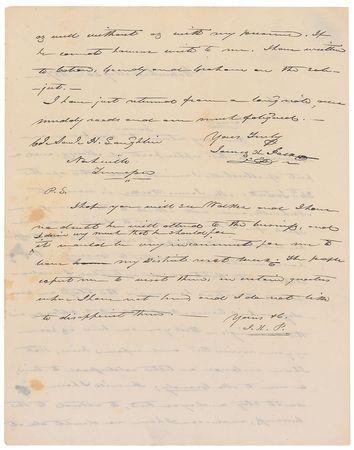 as well without as with my presence. If
he cannot he must write to me. I have written
to Eaton, Grundy and Graham on the sub-
ject.
I have just returned from a long visit, over
muddy roads and am much fatigued.
Col. Saml. H. Laughlin Yours Truly
Nashville James K. Polk
Tennessee
P.S.
I hope you will see Walker and I have
no doubt he will attend to the business, and
it would be very inconvenient for me to
leave my District next week. The people
expect me to visit them, in certain quarters
where I have not been and I do not like
to disappoint them.
Yours &c.
J. K. P.